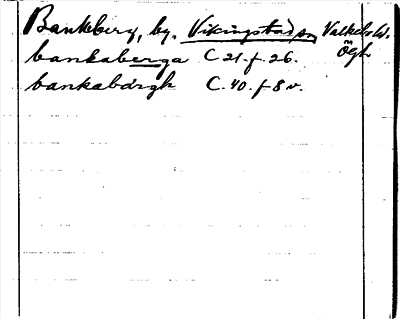 Bankeberg, by, Vikingstad sn, Valkebo hd.
Ögh
bankaberga C 21. f. 26.
bankabärgh C. 40. f 8 v.